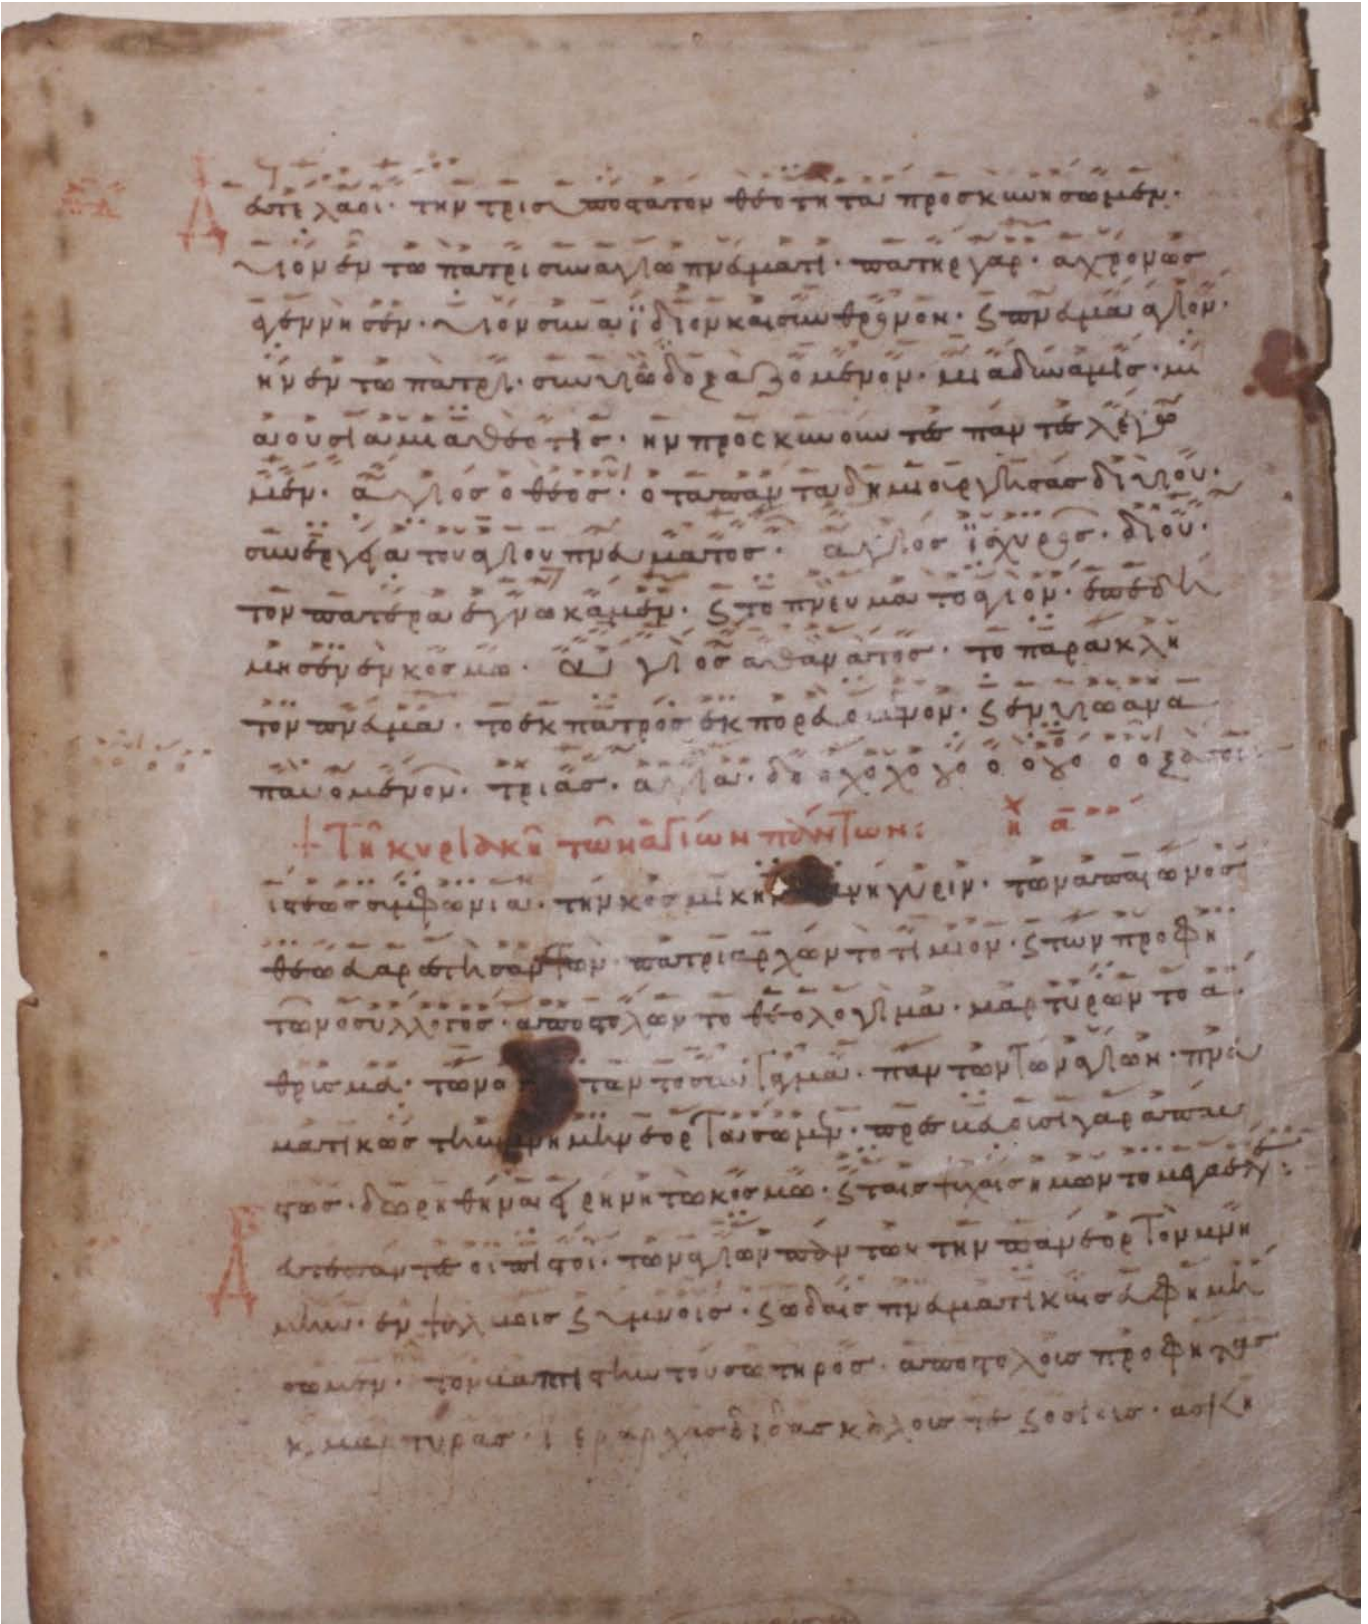 Δεῦτε λαοι· την τρισυποστατον θεοτητα προσκυνησωμεν·
υιον εν τω πατρι συν αγιω πνευματι· πατηρ γαρ· αχρονως
εγεννησεν· υιον συναϊδιον και συνθρονον· ϛ πνευμα αγιον·
ην εν τω πατρι· συν υιω δοξαζομενον· μια δυναμις· μι
α ουσια μια θεοτις· ην προσκυνουν τε παντες λεγω
μεν· αγιος ο θεος· ο τα παντα δημιουργησας δι υιου·
συνεργεια του αγιου πνευματος· αγιος ϊσχυρος· δι ου·
τον πατερα εγνωκαμεν· ϛ το πνευμα το αγιον· επεδη
μησεν εν κοσμω· αγιος αθανατος· το παρακλη
τον πνευμα· το εκ πατρος εκπορευομενον· ϛ εν υιω ανα
παυομενον· τριας· αγια· δο
+ Τη κυριακη των αγιων παντων:
ιστεως συμφωνια· την κοσμικην πανηγυριν· των απ αιωνος
θεω ευαρεστησαντων· πατριαρχων το τιμιον· ϛ των προφη
των ο συλλογος· αποστολων το θεολογιμα· μαρτυρων το α
θρισμα· των παντων των αγιων· πνευ
ματικως την μνημην εορτασωμεν· πρεσβευουσι γαρ απαυ
στως· δωρηθηναι ειρηνη τω κοσμω· ϛ ταις ψυχαις ημων το μεγα ελεος:
Δευτε παντες οι πιστοι· των αγιων παντων την πανεορτον μνη
μην· εν ψαλμοις ϛ υμνοις· ϛ ωδαις πνευματικαις ευφημη
σωμεν· τον βαπτιστην του σωτηρος· αποστολοις προφητας
κ, μαρτυρας· ιεραρχας διδασκαλοις τε ϛ οσιοις· ασκη